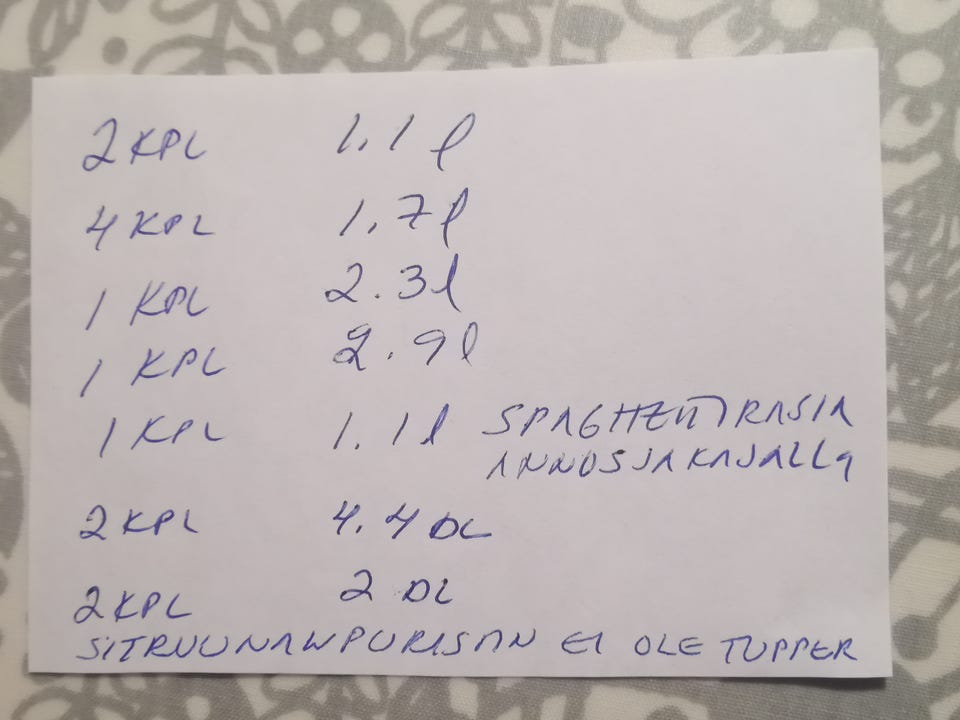 2 KPL 1.1 l
4 KPL 1.7 l
1 KPL 2.3 l
1 KPL 2.9 l
1 KPL 1.1 l SPAGHETTIRASIA
ANNOSJAKAJALLA
2 KPL 4.4 DL
2 KPL 2 DL
SITRUUNANPURISTIN EI OLE TUPPER